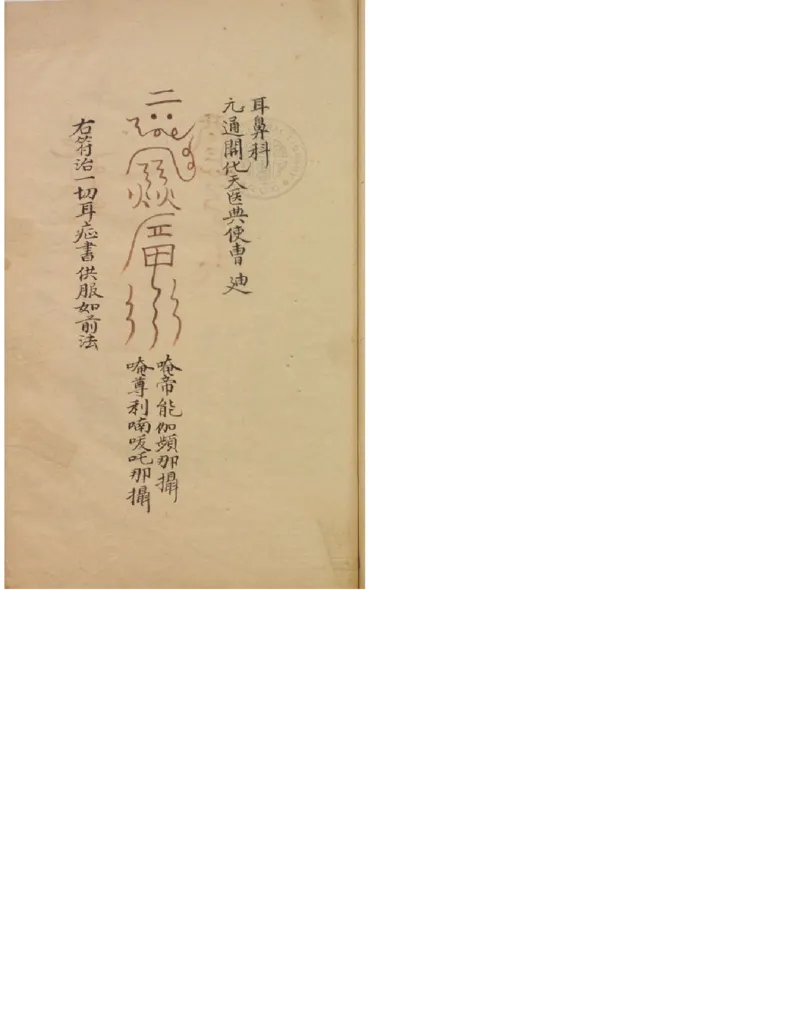 耳鼻科
元通開代天医典使曹 廸
唵帝能伽頻那攝
唵蓴利喃㗋吒那攝
右符治一切耳症書供服如前法